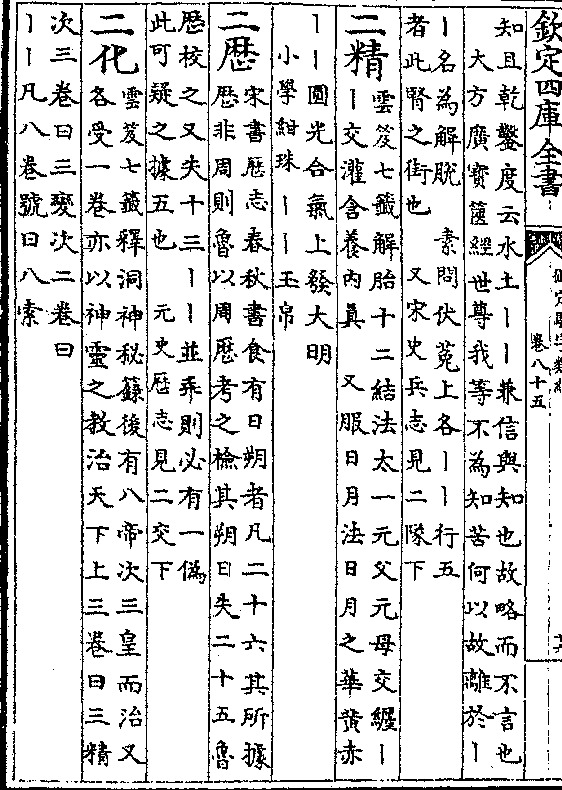 欽定四庫全書
卷八十五
知且乾鑿度云水土丨丨兼信與知也故略而不言也
大方廣寳篋經世尊我等不為知苦何以故離於丨
丨名為解脫　素問伏莵上各丨丨行五
者此腎之街也　又宋史兵志見二隊下
二精
雲笈七籤解胎十二結法太一元父元母交纒丨
丨交灌含養内真　又服日月法日月之華黄赤
丨丨圓光合氣上發大明
小學紺珠丨丨玉帛
二歴
宋書歴志春秋書食有日朔者凡二十六其所據
歴非周則魯以周歴考之檢其朔日失二十五魯
歴校之又失十三丨丨並乖則必有一偽
此可疑之據五也　元史歴志見二交下
二化
雲笈七籤釋洞神秘籙後有八帝次三皇而治又
各受一卷亦以神靈之教治天下上三卷曰三精
次三卷曰三變次二卷曰
丨丨凡八卷號曰八索